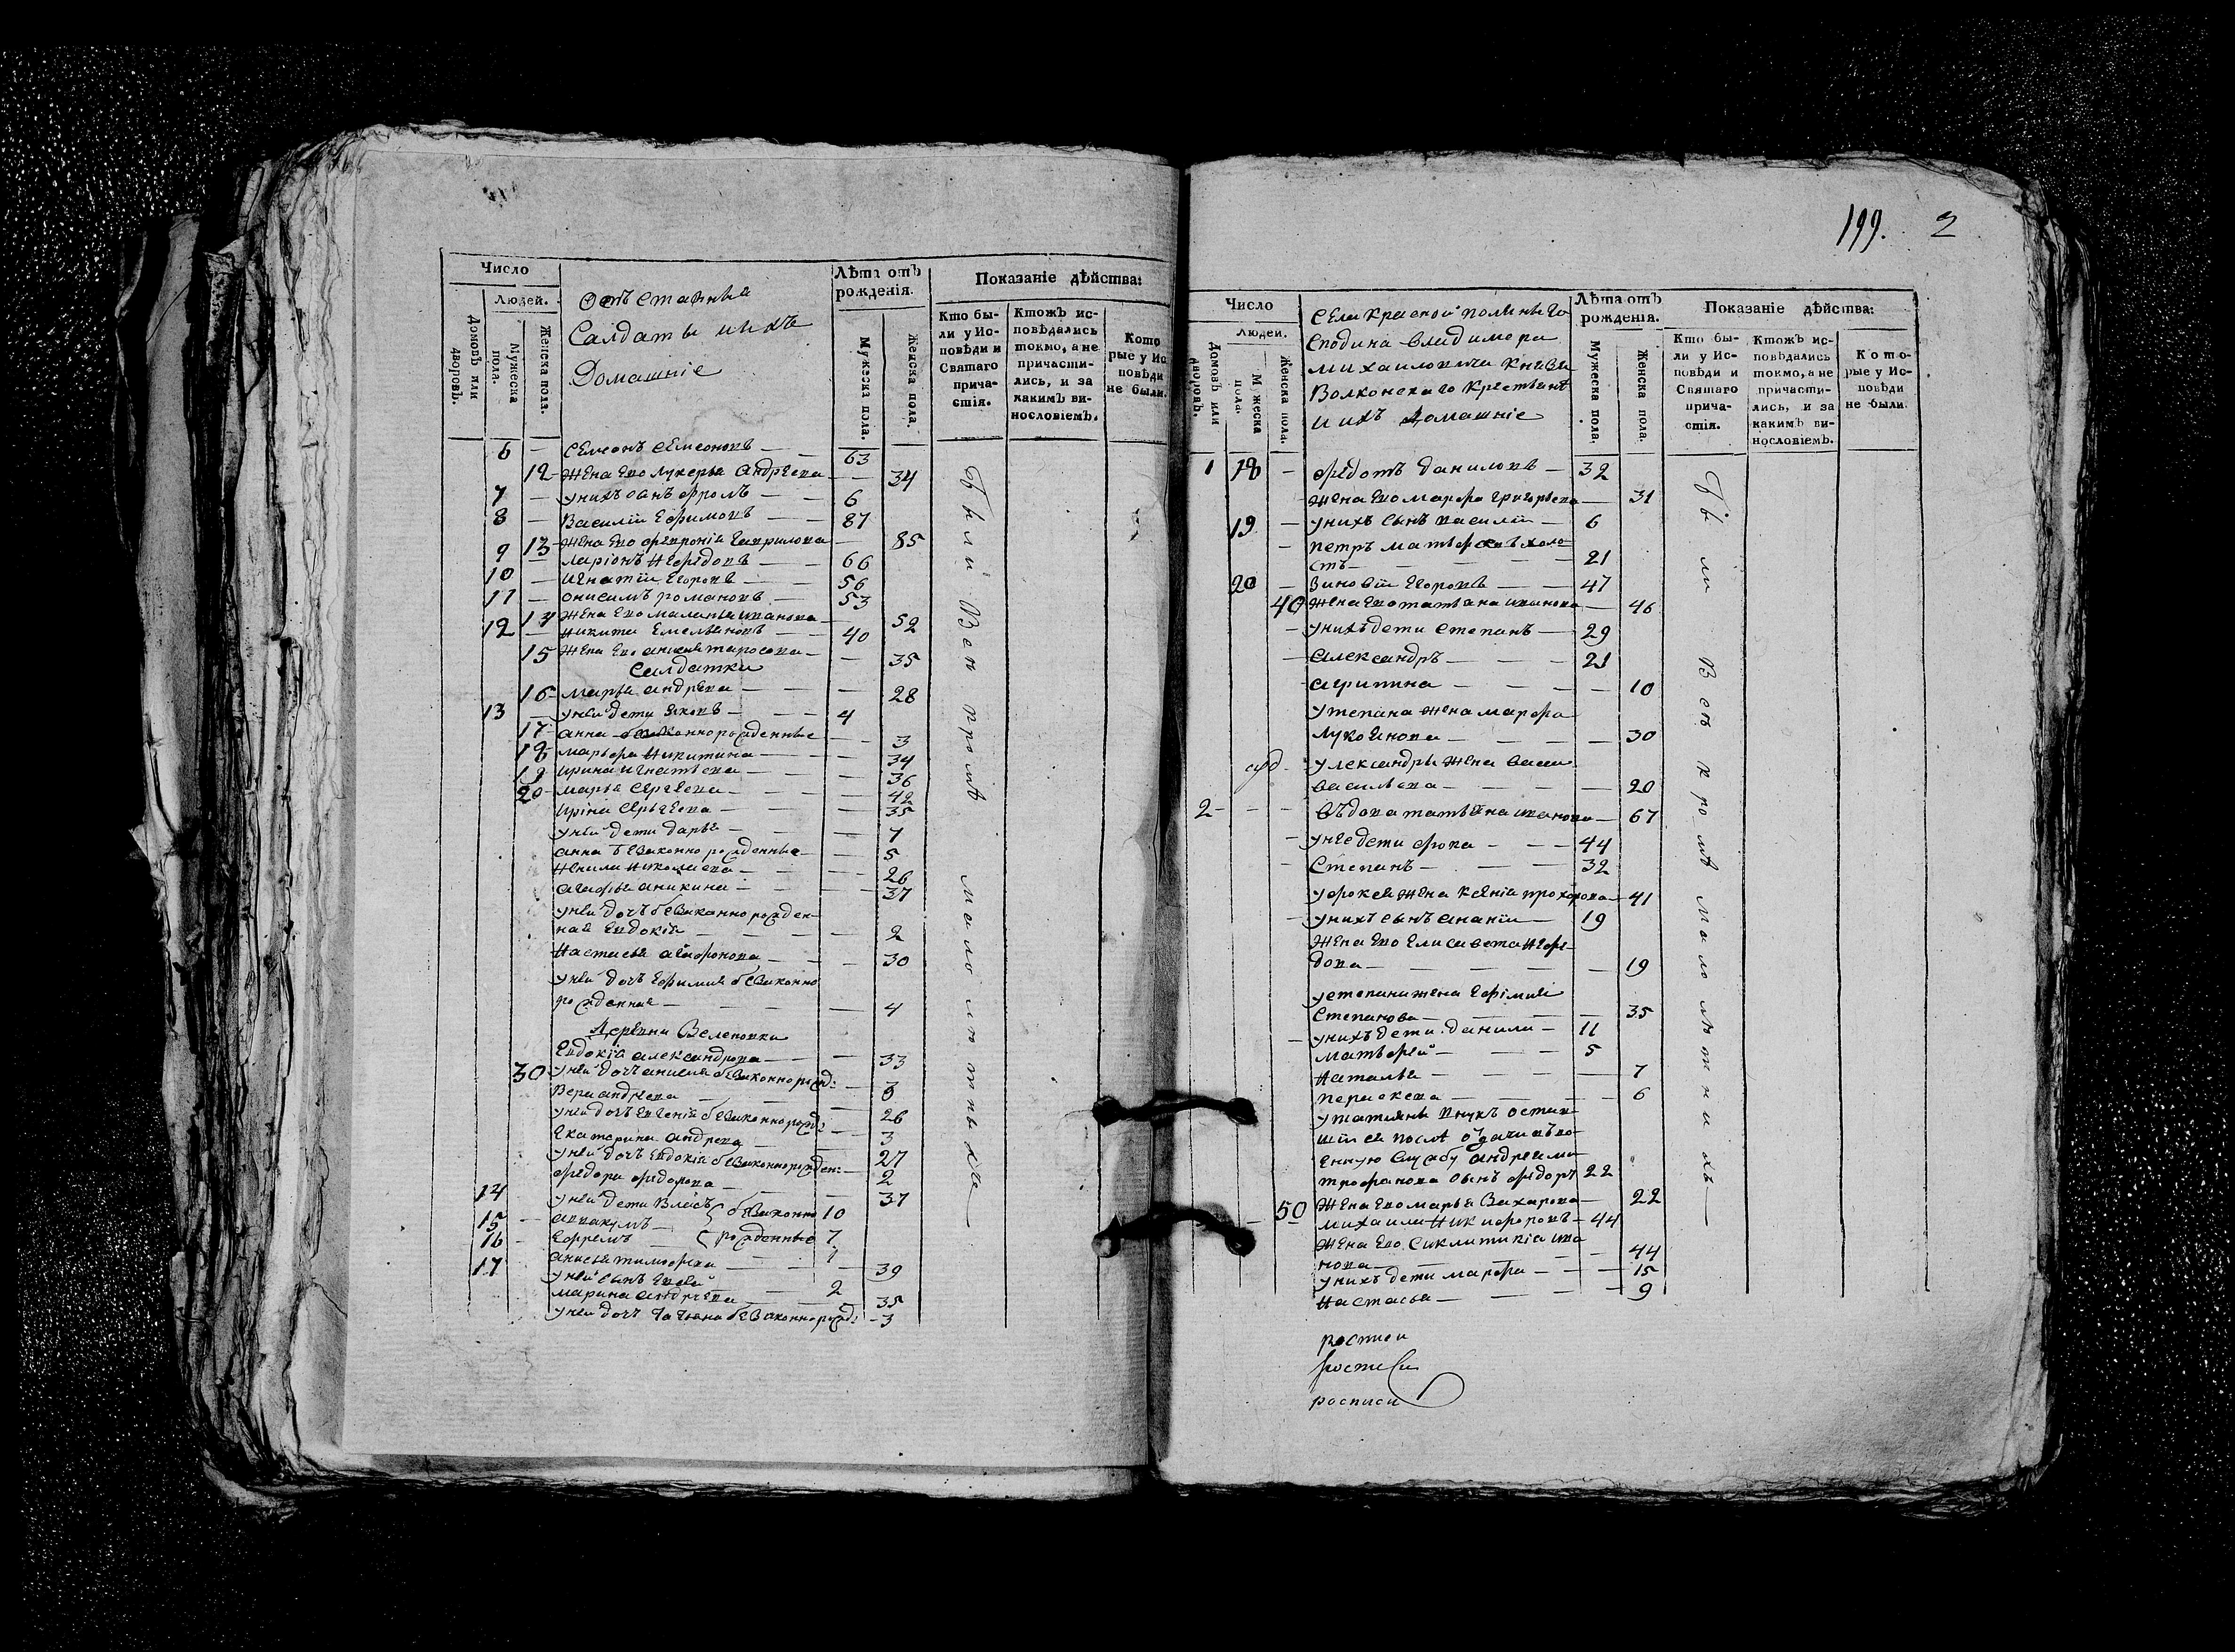 Число
Людей.
Домовъ или дворовъ.
Мужеска пола.
Женска пола.
Отъставныя
Салдаты и ихъ
Домашніе
Лѣта отъ рожденія.
Мужеска пола.
Женска пола.
Показаніе дѣйства:
Кто были у Исповѣди и Святаго причастія.
Ктожъ исповѣдались токмо, а не причастились, и за какимъ винословіемъ.
Которые у Исповѣди не были.
6 — Семенъ Семеновъ — — 63
12 — Жена Ево Лукерья Андреева — — 34
7 — у нихъ сынъ Фролъ — — 6
8 — Василій Ефимовъ — — 87
13 — Жена Ево Февронія Гаврилова — 85
9 — Ларіонъ Нефедовъ — — 66
10 — Игнатій Егоровъ — — 56
11 — Онисимъ Романовъ — — 53
14 Жена Ево Маланья Иванова 52
12 — Никита Емельяновъ — — 40
15 Жена Ево Анисья Тарасова — — 35
Салдатки
16 — Марья Андреева — — — 28
13 — у ней дети Яковъ — — — 4
17 — Анна безаконнорожденные — 3
18 Марфа Никитина — — 34
19 Ирина Игнатьева — — — 36
20 — Марья Сергеева — — — 42
Ирина Сергеева — — — 35
у ней дети Дарья — — — 7
Анна безаконно рожденные — — 5
Ненила Николаева — — — 26
Агафья Аникина — — — 37
у ней дочъ безаконно рожден-
ная Евдокія — — — — 2
Настасья Агафонова — — — 30
у ней дочъ Ефимия безаконно
рожденная — — — — 4
Деревни Велеповки
Евдокія Александрова — — — 33
30 у ней дочъ Анисья безаконнорожд: — 3
Вера Андреева — — — 26
у ней дочъ Евгенія безаконнорожд: — 3
Екатерина Андреева — 27
у ней дочъ Евдокія безаконнорожден: — 2
Федора Федорова — — — 37
14 у ней дети Власъ безаконно 10
15 — Аввакумъ — рожденные 7
16 — Ефремъ —
Анисья Тимофеева — — — 39
17 у ней сынъ Евсей — — 2
Марина Андреева — 35
у ней дочъ Татьяна безаконнорожд: — 3
Были Всѣ кромѣ малолѣтныхъ —
199. 2
Число
Людей.
Домовъ или дворовъ.
Мужеска пола.
Женска пола.
Села Красной поляны Го
сподина Владимера
Михаиловича Князя
Волконскаго Крестьяне
и ихъ Домашніе
Лѣта отъ рожденія.
Мужеска пола.
Женска пола.
Показаніе дѣйства:
Кто были у Исповѣди и Святаго причастія.
Ктожъ исповѣдались токмо, а не причастились, и за какимъ винословіемъ.
Которые у Исповѣди не были.
1 18 — Федотъ Даниловъ — 32
Жена Ево Марфа Григорьева — 31
19 — у нихъ сынъ Василій — 6
— Петръ Матвеевъ холо-
стъ — — — — 21
20 — Зиновій Егоровъ — — 47
40 Жена Ево Татьяна Иванова — 46
— у нихъ дети Степанъ — 29
— Александръ — — — 21
Агрипина — — — — 10
у Степана Жена Марфа
Лукоянова — — — — 30
у Александры Жена Васи-
Васильева — — — — 20
2 — — — Въдова Татьяна Иванова — 67
— у нее дети Фока — — — 44
— Степанъ — — — 32
у Фокея Жена Ксенія Прохорова — 41
— у нихъ сынъ Ананій — 19
Жена Ево Елисавета Нефе-
дова — — — — — 19
у Степана жена Ефімия
Степанова — — — — 35
— у нихъ дети Данила — 11
Матвей — — — 5
Наталья — — — — 7
Параскева — — — — 6
у Татьяны внукъ остав-
шій ся после отдачи въ во-
енную службу Андрея Ми
трофанова сынъ Федоръ 22
50 Жена Ево Марья Захарова — 22
Михаила Никифоровъ — 44
Жена Ево Сиклитикіа Ива
нова — — — — 44
у нихъ дети Марфа — — — 15
Настасья — — — — 9
Были Всѣ кромѣ малолѣтнихъ —
росписи
росписи
росписи